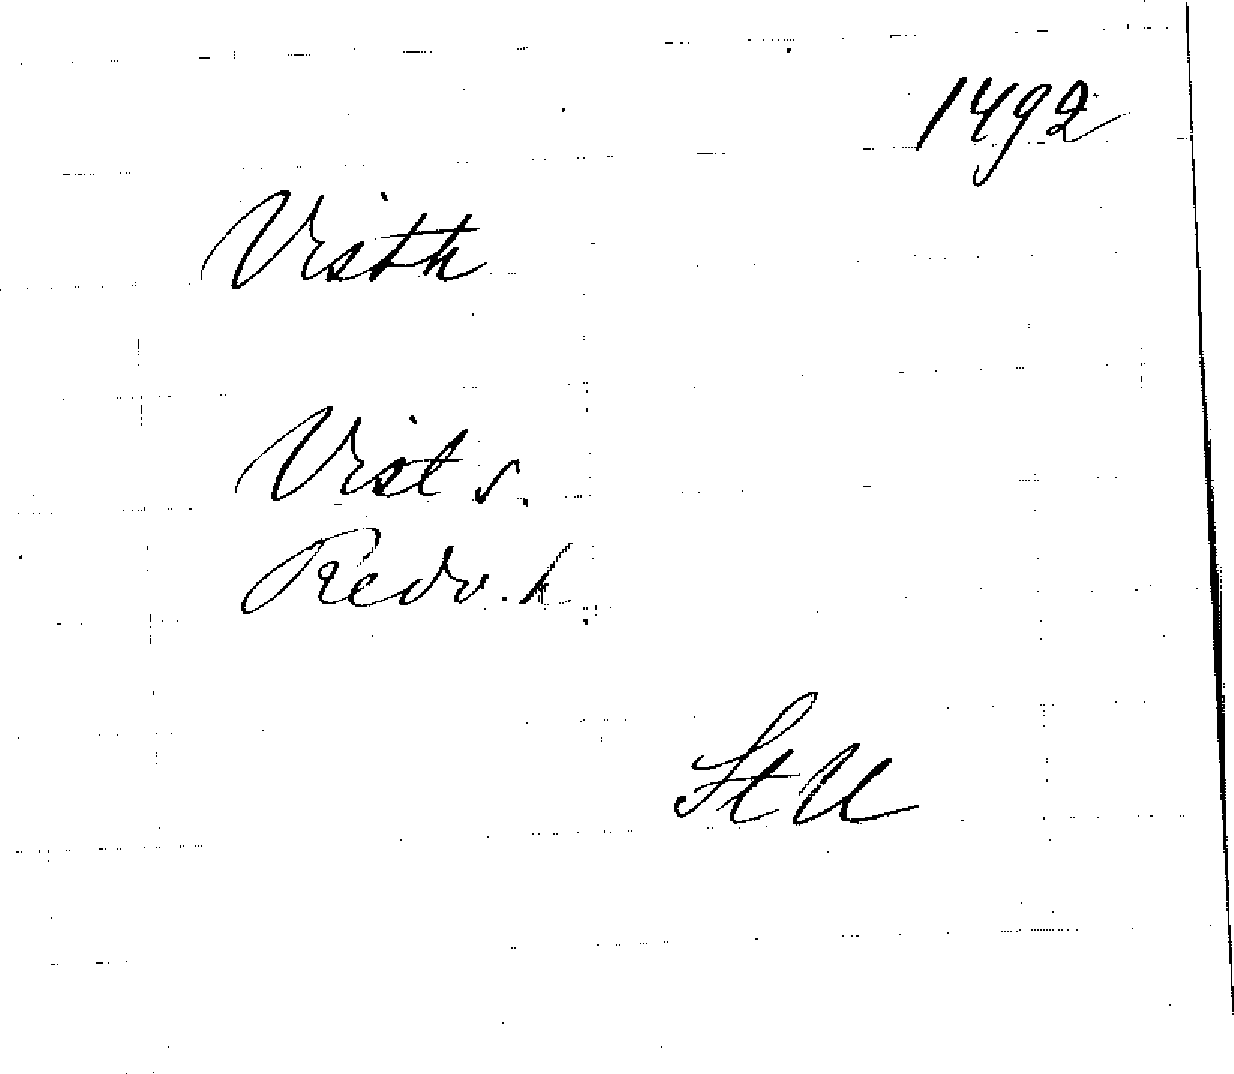 1492
Vistk
Vist s.
Redv. k.
St U